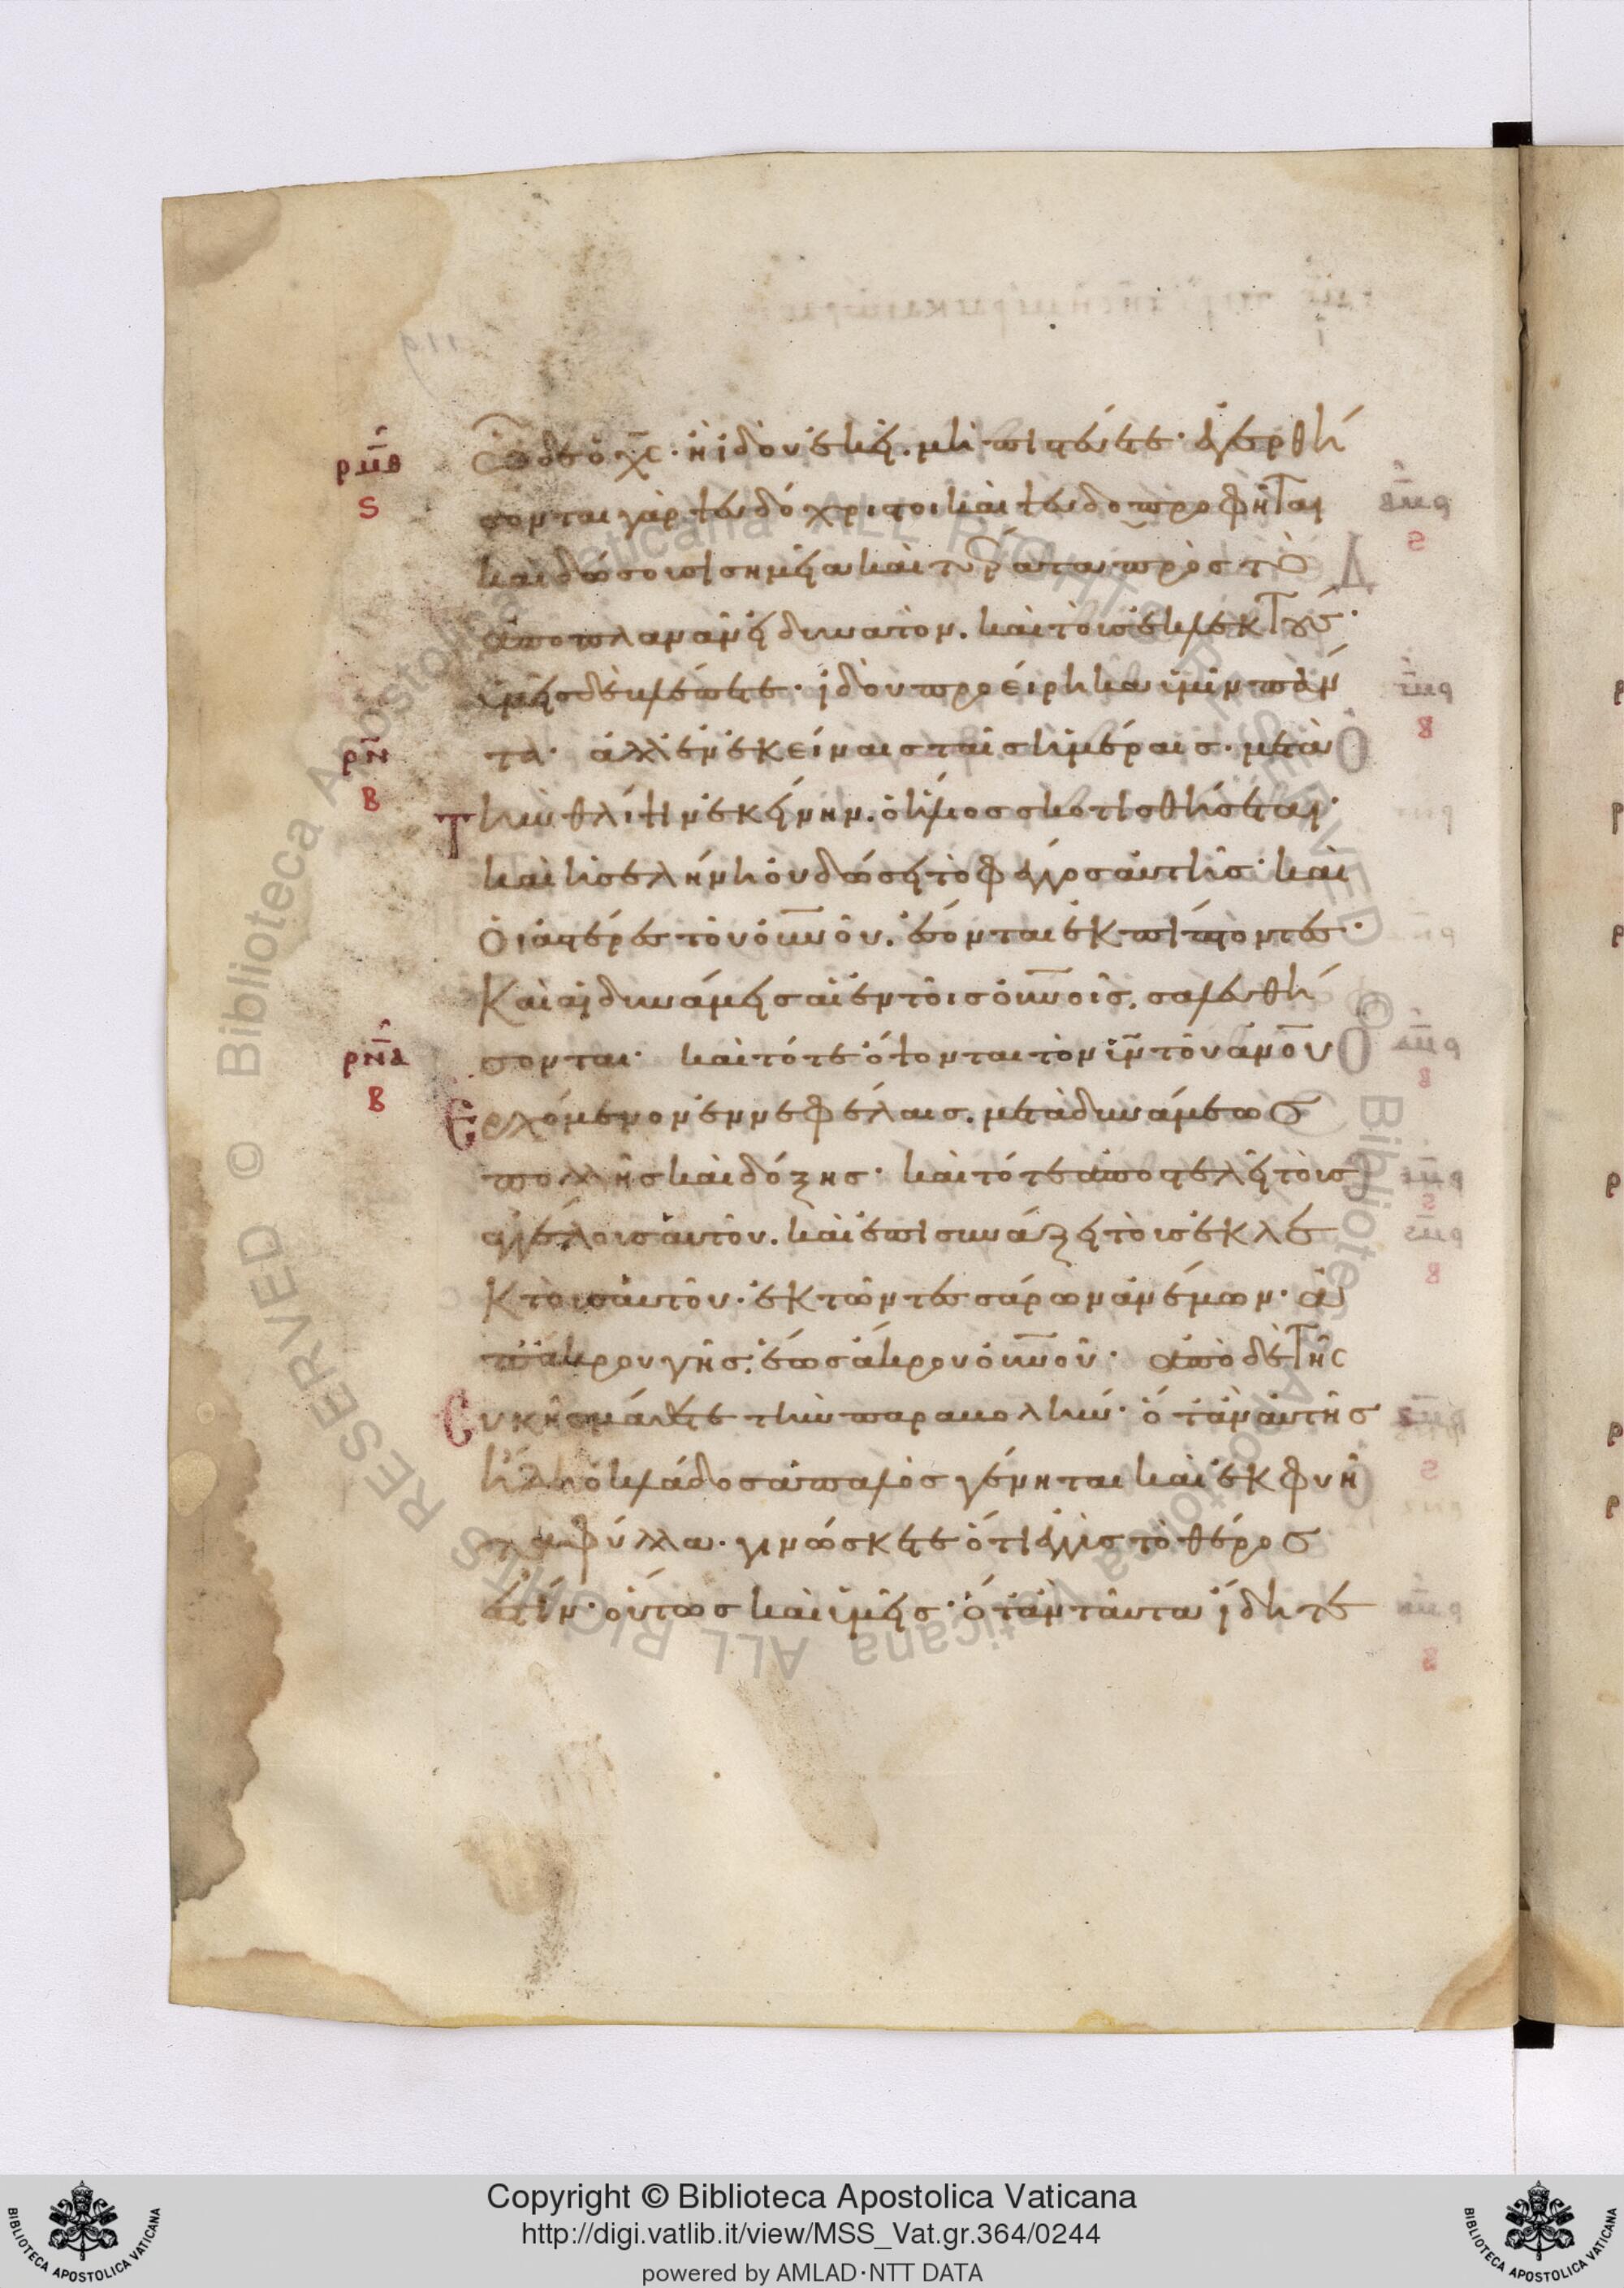 ὧδε ὁ χς· ἢ ἰδοὺ ἐκεῖ. μὴ πιστεύετε· ἐγερθή
σονται γὰρ ψευδόχριστοι καὶ ψευδοπροφῆται
καὶ δώσουσι σημεῖα καὶ τέρατα πρὸς τὸ
ἀποπλανᾶν εἰ δυνατὸν. καὶ τοὺς ἐκλεκτούς·
ὑμεῖς δὲ βλέπετε· ἰδοὺ προείρηκα ὑμῖν πάν
τα· ἀλλ' ἐν ἐκείναις ταῖς ἡμέραις· μετὰ
Τὴν θλίψιν ἐκείνην. ὁ ἥλιος σκοτισθήσεται·
καὶ ἡ σελήνη οὐ δώσει τὸ φέγγος αὐτῆς· καὶ
οἱ ἀστέρες τοῦ οὐνοῦ. ἔσονται ἐκπίπτοντες·
Καὶ αἱ δυνάμεις αἱ ἐν τοῖς οὐνοῖς. σαλευθή
σονται· καὶ τότε ὄψονται τὸν υν τοῦ ανου
Ἐρχόμενον ἐν νεφέλαις. μετὰ δυνάμεως
πολλῆς καὶ δόξης· καὶ τότε ἀποστελεῖ τοὺς
ἀγγέλους αὐτοῦ. καὶ ἐπισυνάξει τοὺς ἐκλε
κτοὺς αὐτοῦ· ἐκ τῶν τεσσάρων ἀνέμων· ἀ
π' ἄκρου γῆς. ἕως ἄκρου οὐνοῦ· ἀπὸ δὲ τῆς
Συκῆς μάθετε τὴν παραβολήν· ὅταν αὐτῆς
ἤδη ὁ κλάδος ἁπαλὸς γένηται καὶ ἐκφυῆ
τὰ φύλλα· γινώσκετε ὅτι ἐγγὺς τὸ θέρος
ἐστίν· οὕτως καὶ ὑμεῖς· ὅταν ταῦτα ἴδητε
ρμθ
ς
ρν
β
ρνα
β
Copyright © Biblioteca Apostolica Vaticana
http://digi.vatlib.it/view/MSS_Vat.gr.364/0244
powered by AMLAD·NTT DATA
BIBLIOTECA APOSTOLICA VATICANA
BIBLIOTECA APOSTOLICA VATICANA